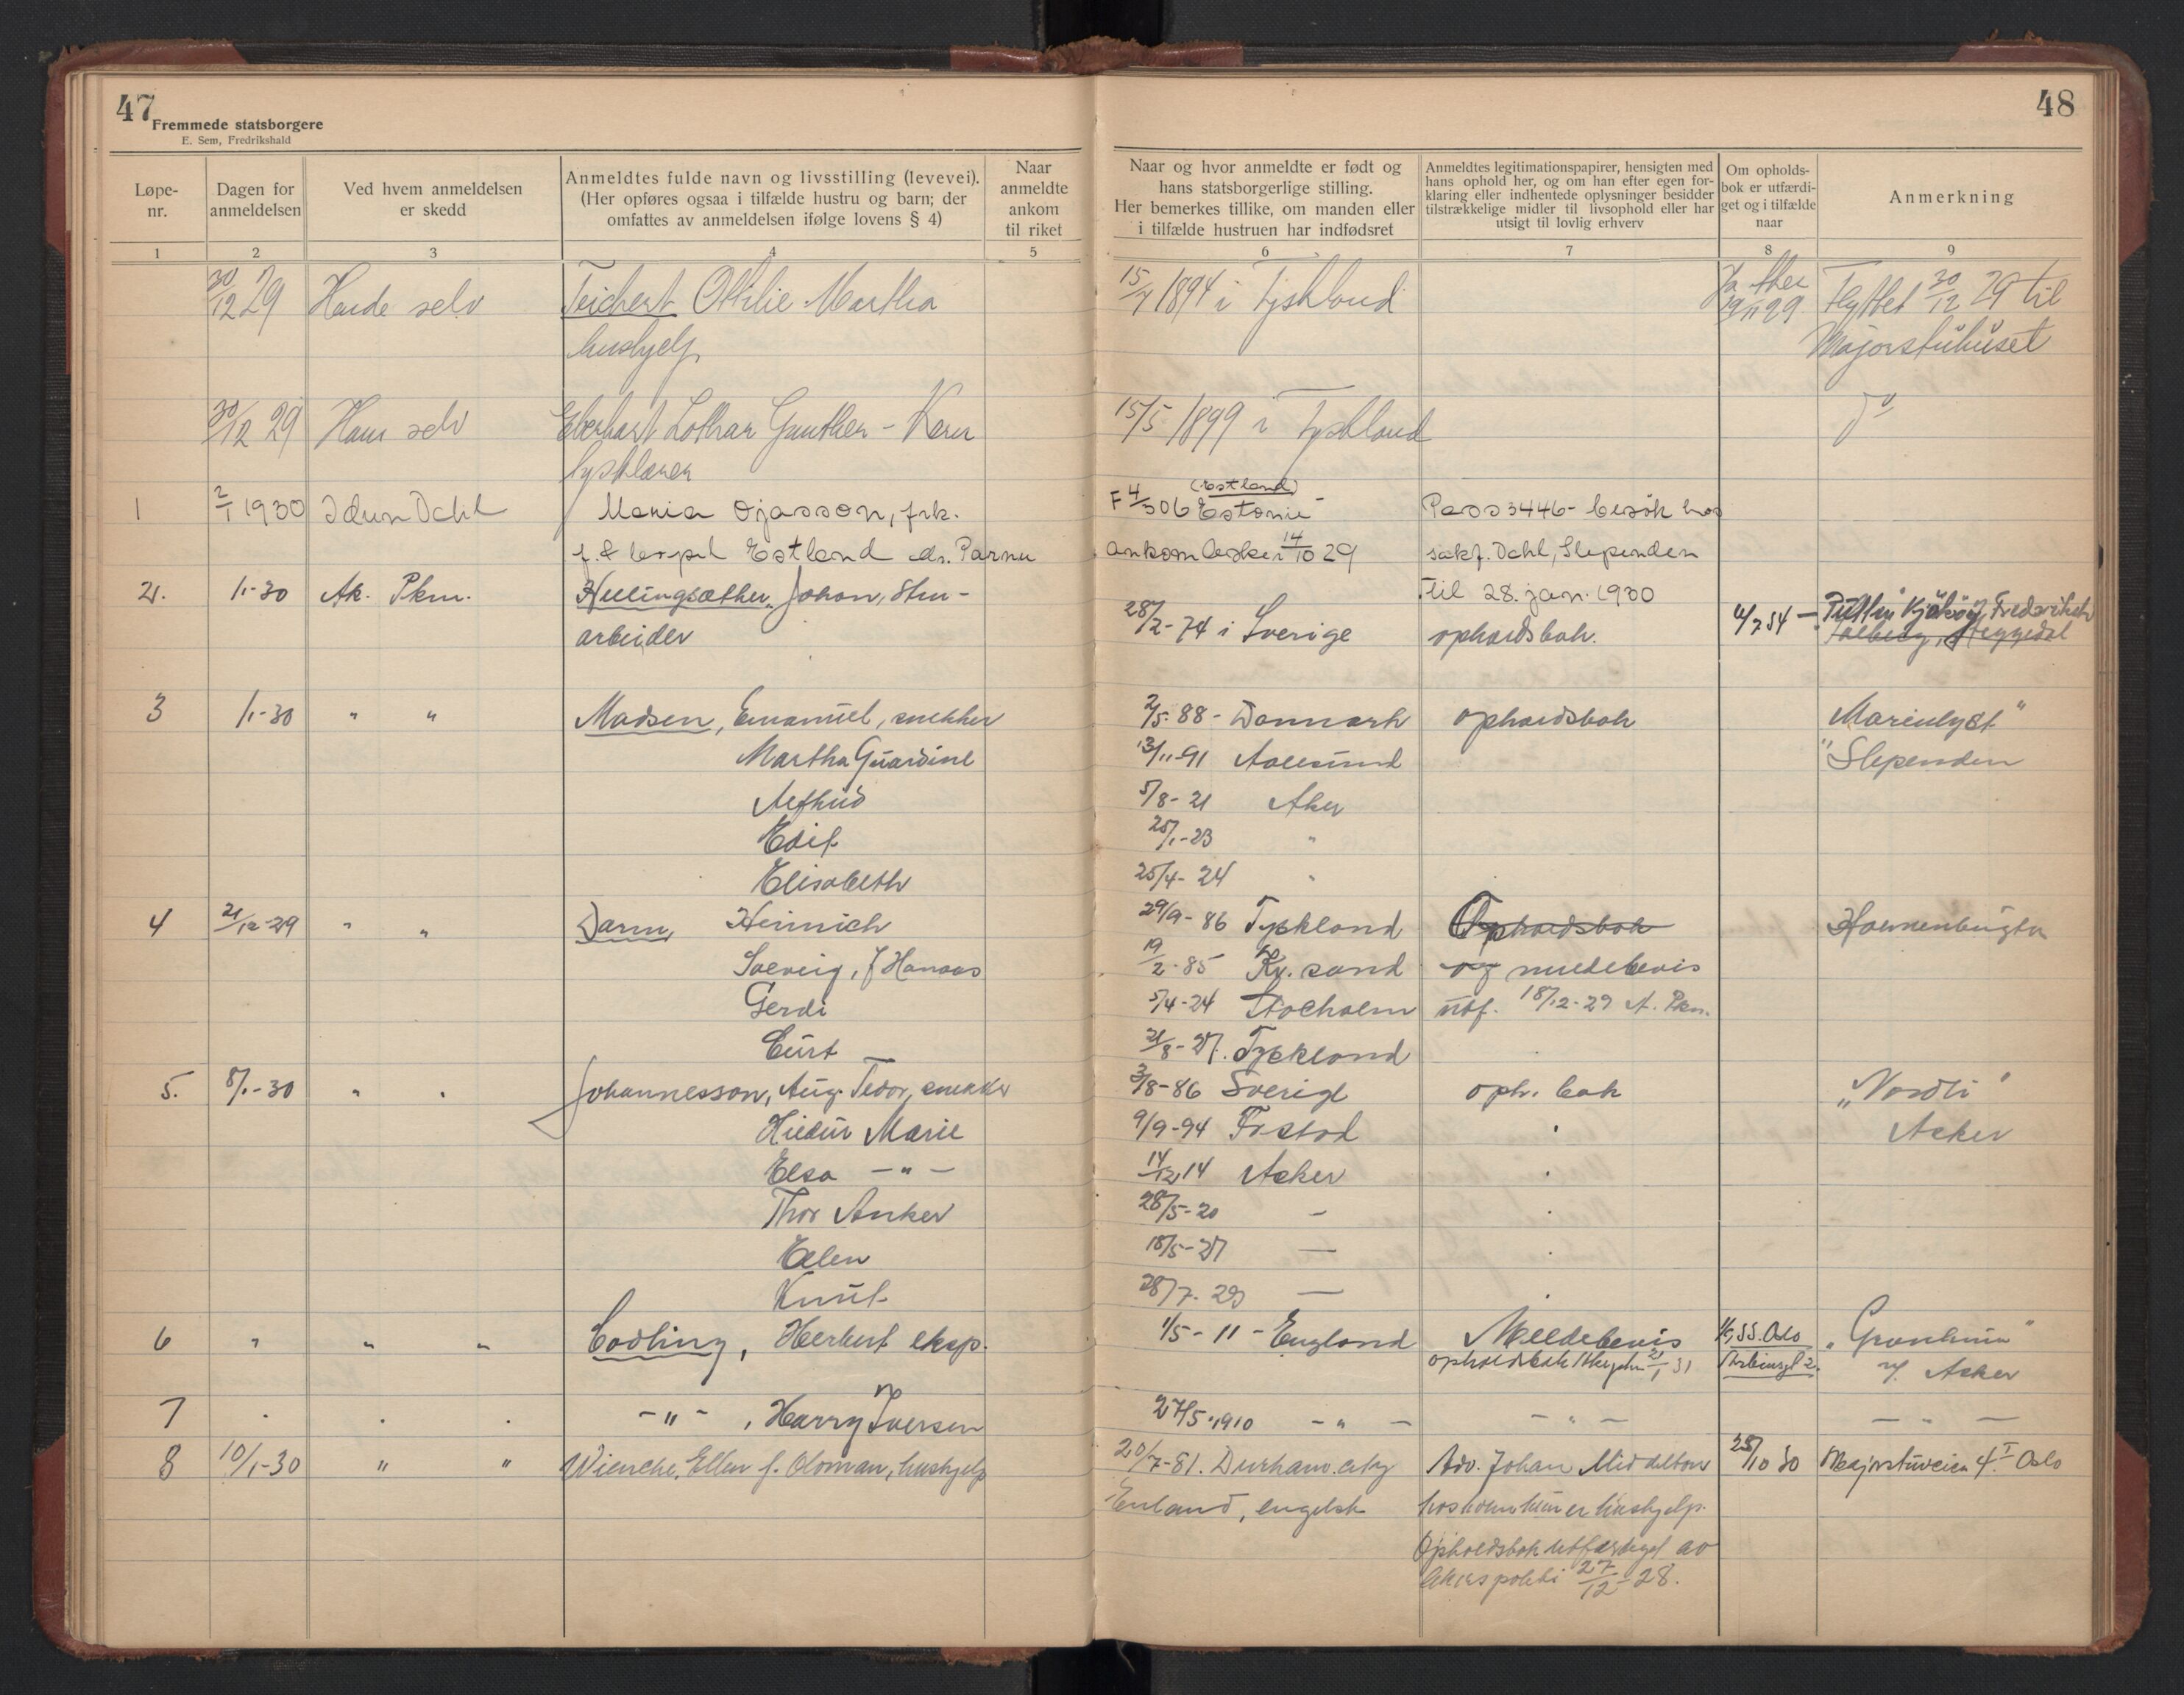 47
Fremmede statsborgere
E. Sem, Fredrikshald
Løpe-
nr.
Dagen for
anmeldelsen
Ved hvem anmeldelsen
er skedd
Anmeldtes fulde navn og livsstilling (levevei).
(Her opføres ogsaa i tilfælde hustru og barn; der
omfattes av anmeldelsen ifølge lovens § 4)
Naar
anmeldte
ankom
til riket
1 2 3 4 5
30/12 29 selv Teichert Othilie Martha
hushjelp
30/12 29 Han selv Eberhart Lothar Gunther - Karer
1 2/1 1930 Idun Dahl Maria Ojasson, frk.
Estland ds. Parnu
2. 1/1-30 Ak. Pkm. Johan, Sten-
arbeider
3 1/1-30 " " Madsen, Emanuel, snekker
Martha Guardine
Edit
Elisabeth
4 21/12-29 " " Darm, Heinrich
Solveig, f Hanaas
Gerdi
Curt
5. 8/1-30 " " Johannesson, Aug. Tedor, snekker
Marie
Elsa - " -
Thor Anker
Ellen
Knut
6 " " " Codling, Herbert eksp.
7 " " " - " - , Harry Iversen
8 10/1-30 " " Wiencke, Ellen f. Oloman, hushjelp
48
Naar og hvor anmeldte er født og
hans statsborgerlige stilling.
Her bemerkes tillike, om manden eller
i tilfælde hustruen har indfødsret
Anmeldtes legitimationspapirer, hensigten med
hans ophold her, og om han efter egen for-
klaring eller indhentede oplysninger besidder
tilstrækkelige midler til livsophold eller har
utsigt til lovlig erhverv
Om opholds-
bok er utfærdi-
get og i tilfælde
naar
Anmerkning
6 7 8 9
15/7 1894 i Tyskland Flyttet 30/12 29 til
Majorstuhuset
15/5 1899 i Tyskland do
(Estland)
F 4/3 06 Estonie Pass 3446 - besøk hos
ankom Asker 14/10 29 sakf. Dahl, Slependen
til 28. jan. 1930
28/2-74 i Sverige opholdsbok. Solberg, Heggedal
2/5-88 - Danmark opholdsbok "Marienlyst"
13/11-91 Aalesund Slependen
5/8-21 Aker
25/1-23 "
25/4-24 "
29/9-86 Tyskland Opholdsbok
19/2-85 Kr. sand og meldebevis
5/4-24 Stockholm utf. 18/12-29 A. Pkm.
21/8-27. Tyskland
3/8-86 Sverige oph. bok "Nordli"
9/9-94 Fr.stad " Asker
14/12 14 Asker "
28/5-20 - "
18/5-27 — "
28/7-29 — "
1/5-11 - England Meldebevis
opholdsbok 2/1 31 Asker
27/5 1910 - " - - " - - " -
20/7-81. Durham. city Adv. Johan Middelton 25/10 30 Majorstuveien 4 I Oslo
Enland, engelsk hos hvem hun er hushjelp.
Opholdsbok utfærdiget av
Akers politi 27/12-28.